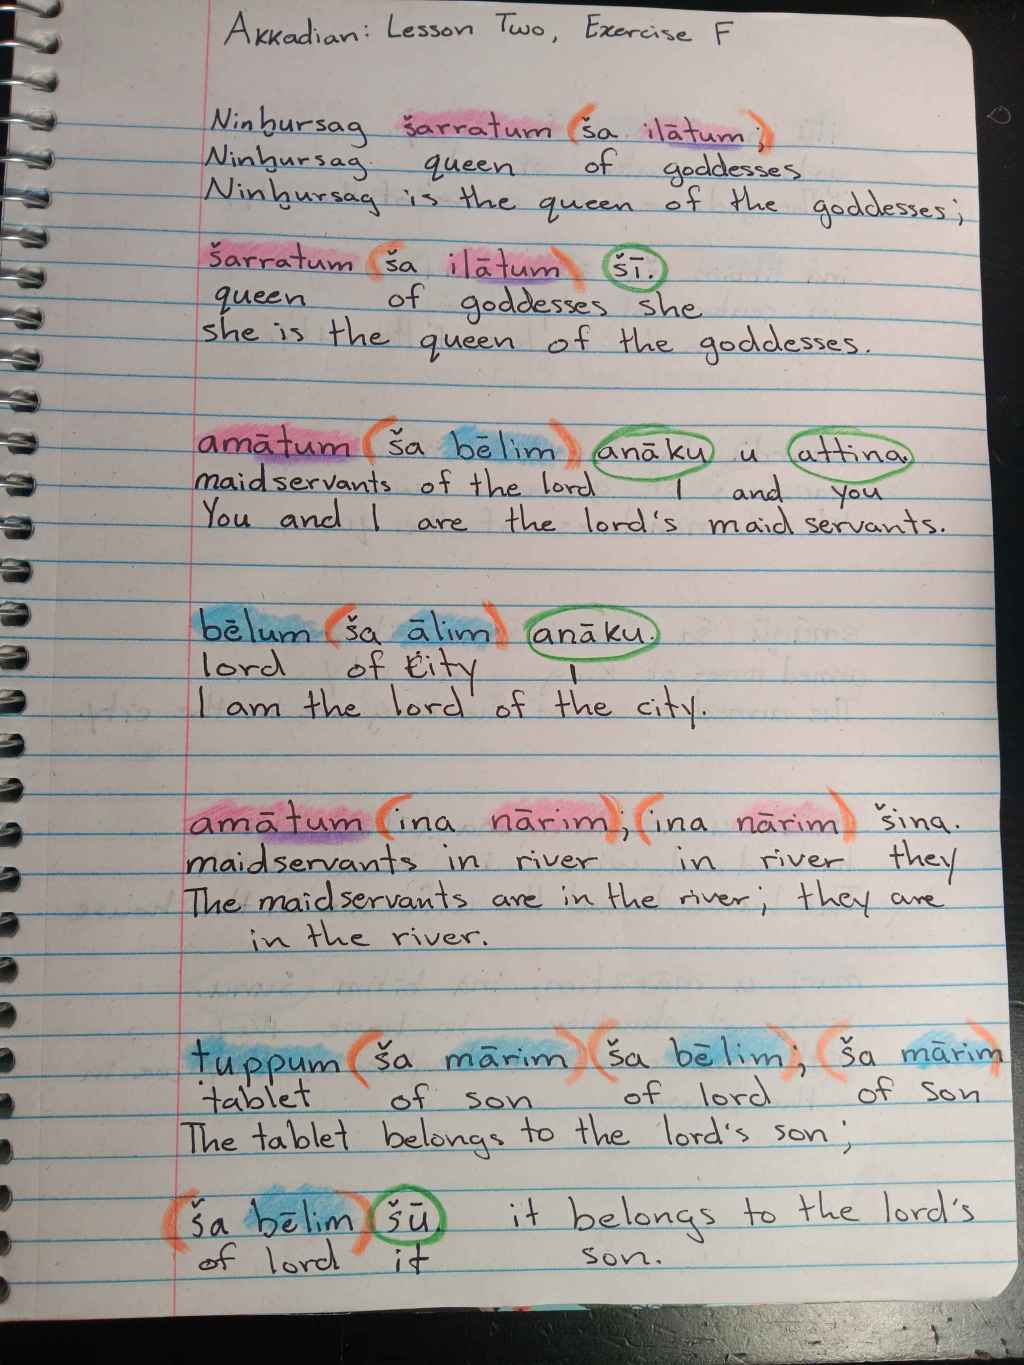 Akkadian: Lesson Two, Exercise F
Ninḫursag šarratum (ša ilātum;)
Ninḫursag queen of goddesses
Ninḫursag is the queen of the goddesses;
šarratum (ša ilātum) šī.
queen of goddesses she
she is the queen of the goddesses.
amātum (ša bēlim) anāku u attina.
maidservants of the lord I and you
You and I are the lord's maidservants.
bēlum (ša ālim) anāku.
lord of city I
I am the lord of the city.
amātum (ina nārim); (ina nārim) šina.
maidservants in river in river they
The maidservants are in the river; they are
in the river.
tuppum (ša mārim) (ša bēlim); (ša mārim)
tablet of son of lord of son
The tablet belongs to the lord's son;
(ša bēlim) šū. it belongs to the lord's
of lord it son.